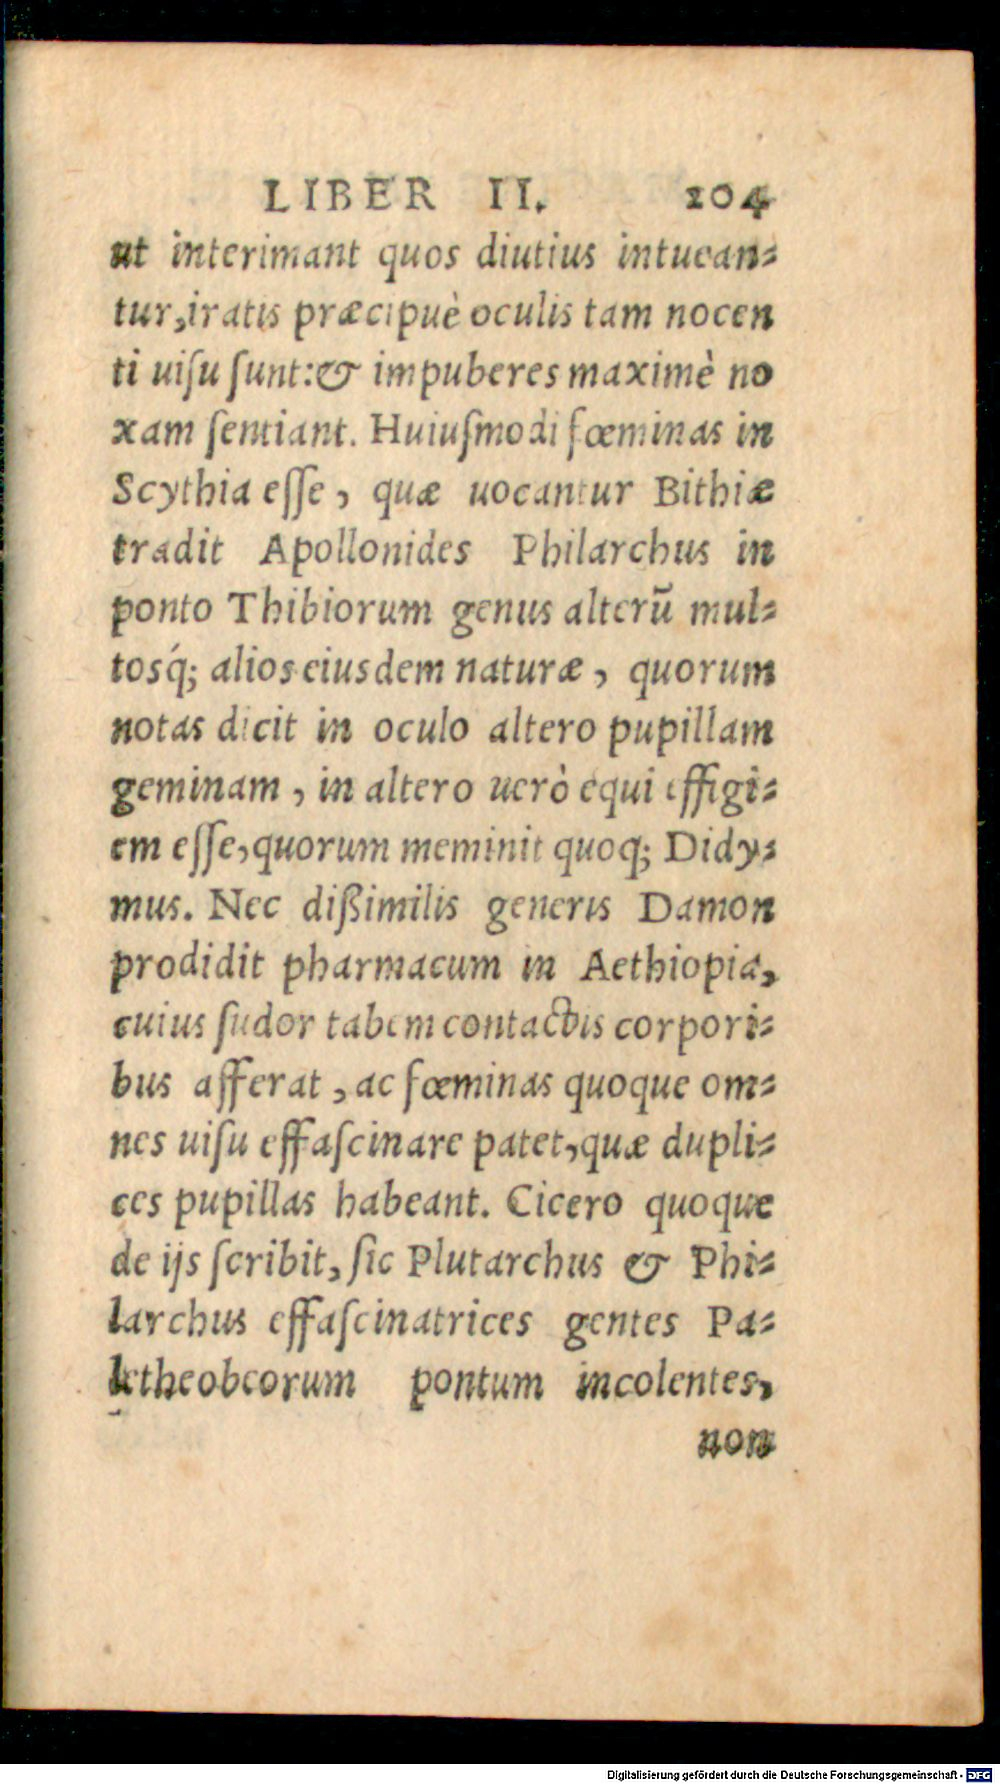 LIBER II. 104
ut interimant quos diutius intuean⸗
tur, iratis præcipuè oculis tam nocen
ti uiſu ſunt: & impuberes maximè no
xam ſentiant. Huiuſmodi fœminas in
Scythia eſſe, quæ uocantur Bithiæ
tradit Apollonides Philarchus in
ponto Thibiorum genus alterũ mul⸗
tosq́; alios eiusdem naturæ, quorum
notas dicit in oculo altero pupillam
geminam, in altero uerò equi effigi⸗
em eſſe, quorum meminit quoq; Didy⸗
mus. Nec dißimilis generis Damon
prodidit pharmacum in Aethiopia,
cuius ſudor tabem contactis corpori⸗
bus afferat, ac fœminas quoque om⸗
nes uiſu effaſcinare patet, quæ dupli⸗
ces pupillas habeant. Cicero quoque
de ijs ſcribit, ſic Plutarchus & Phi⸗
larchus effaſcinatrices gentes Pa⸗
letheobeorum pontum incolentes,
non
Digitalisierung gefördert durch die Deutsche Forschungsgemeinschaft - DFG